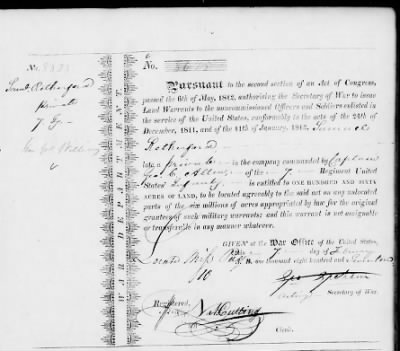 6
No.
No.
Private
7
PURSUANT to the second section of an Act of Congress,
passed the 6th of May, 1812, authorising the Secretary of War to issue
Land Warrants to the noncommissioned Officers and Soldiers enlisted in
the service of the United States, conformably to the acts of the 24th of
December, 1811, and of the 11th of January, 1812, Samuel
Rutherford
late a private in the company commanded by Captain
Geo C Allen of the 7 Regiment United
States' Infantry is entitled to ONE HUNDRED AND SIXTY
ACRES OF LAND, to be located agreeably to the said act on any unlocated
parts of the six millions of acres appropriated by law for the original
grantees of such military warrants; and this warrant is not assignable
or transferable in any manner whatever.
WAR DEPARTMENT.
GIVEN at the War Office of the United States,
this 7 day of February
A. D. one thousand eight hundred and
$10
Geo Graham
acting Secretary of War.
Registered,
N Cutting
Clerk.